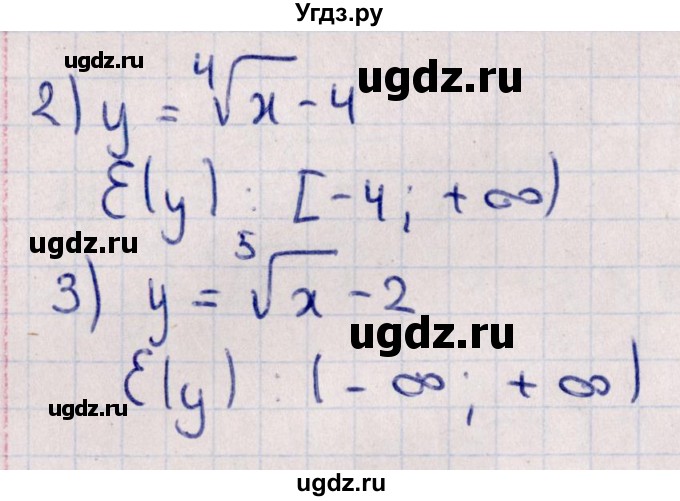 Угдз.ру
ugdz.ru
2) y = ⁴√x - 4
ugdz.ru
E(y) : [-4; +∞)
ugdz.ru
3) y = ⁵√x - 2
ugdz.ru
E(y) : (-∞; +∞)
ugdz.ru
ugdz.ru